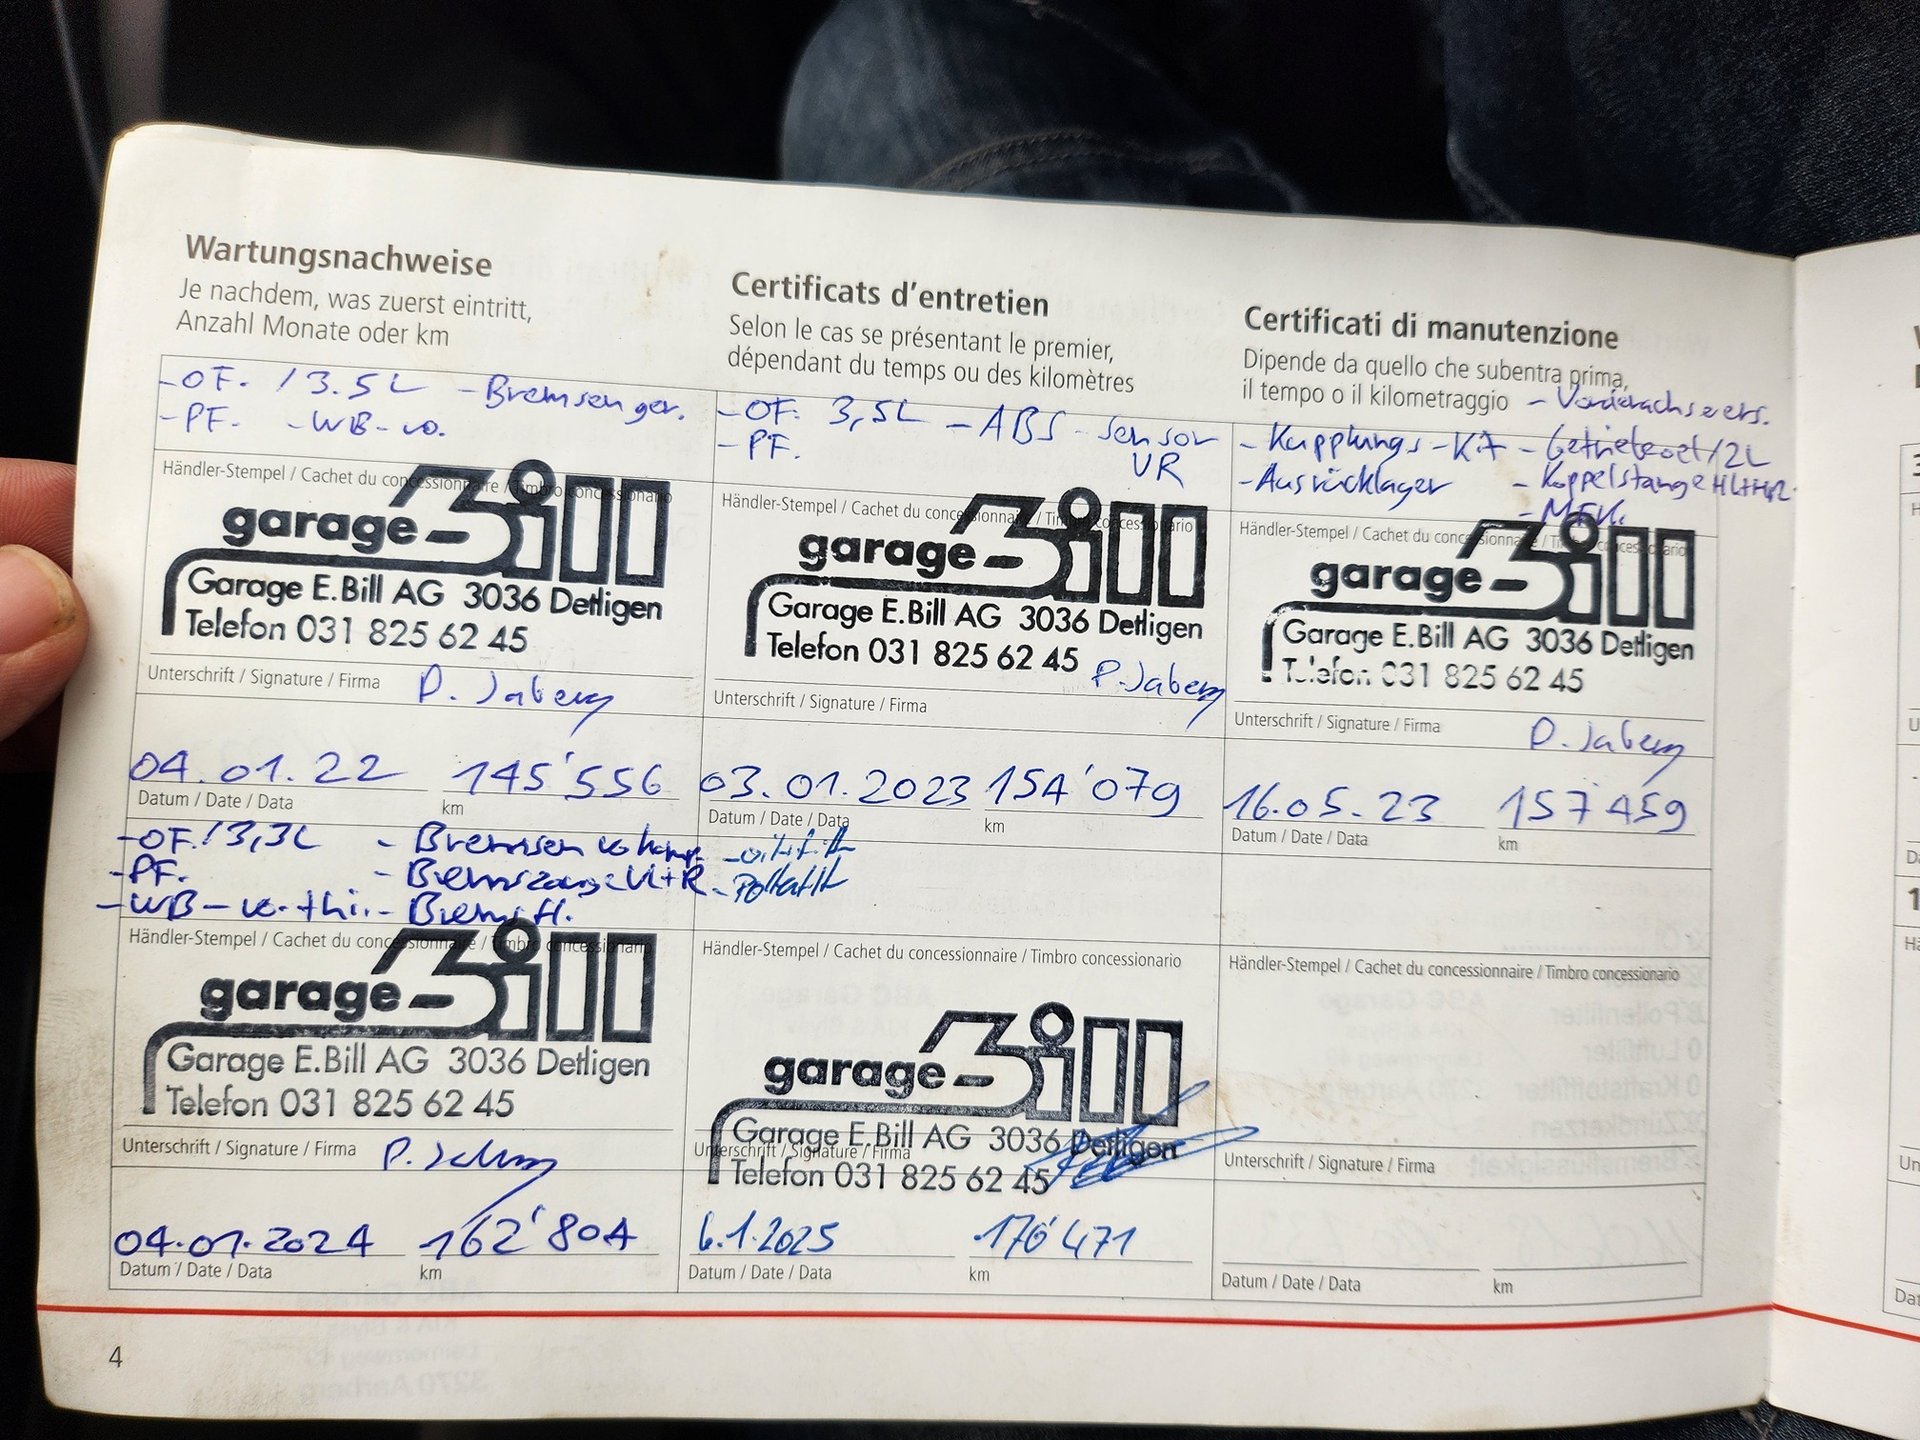 Wartungsnachweise
Je nachdem, was zuerst eintritt,
Anzahl Monate oder km
Certificats d'entretien
Selon le cas se présentant le premier,
dépendant du temps ou des kilomètres
Certificati di manutenzione
Dipende da quello che subentra prima,
il tempo o il kilometraggio
-OF. / 3.5L - Bremsen ger.
-PF. -WB-vo.
Händler-Stempel / Cachet du concessionnaire / Timbro concessionario
garage Bill
Garage E.Bill AG 3036 Detligen
Telefon 031 825 62 45
Unterschrift / Signature / Firma P. Jaberg
04.01.22 145'556
Datum / Date / Data km
-OF. 3,5L - ABS-Sensor
-PF. VR
Händler-Stempel / Cachet du concessionnaire / Timbro concessionario
garage Bill
Garage E.Bill AG 3036 Detligen
Telefon 031 825 62 45
P. Jaberg
Unterschrift / Signature / Firma
03.01.2023 154'079
Datum / Date / Data km
- Vorderachsvers.
- Kupplungs-Kit - Getriebeoel/2L
- Ausrücklager - Koppelstange HL+HR
- MFK.
Händler-Stempel / Cachet du concessionnaire / Timbro concessionario
garage Bill
Garage E.Bill AG 3036 Detligen
Telefon 031 825 62 45
Unterschrift / Signature / Firma P. Jaberg
16.05.23 157'459
Datum / Date / Data km
-OF. / 3,3L - Bremsen vo
-PF. - Bremszange VL+R
-WB-vo.+hi. - Bremsfl.
Händler-Stempel / Cachet du concessionnaire / Timbro concessionario
garage Bill
Garage E.Bill AG 3036 Detligen
Telefon 031 825 62 45
Unterschrift / Signature / Firma P. Jaberg
04.01.2024 162'804
Datum / Date / Data km
Händler-Stempel / Cachet du concessionnaire / Timbro concessionario
garage Bill
Garage E.Bill AG 3036 Detligen
Unterschrift / Signature / Firma
Telefon 031 825 62 45
6.1.2025 170'471
Datum / Date / Data km
Händler-Stempel / Cachet du concessionnaire / Timbro concessionario
Unterschrift / Signature / Firma
Datum / Date / Data km
4